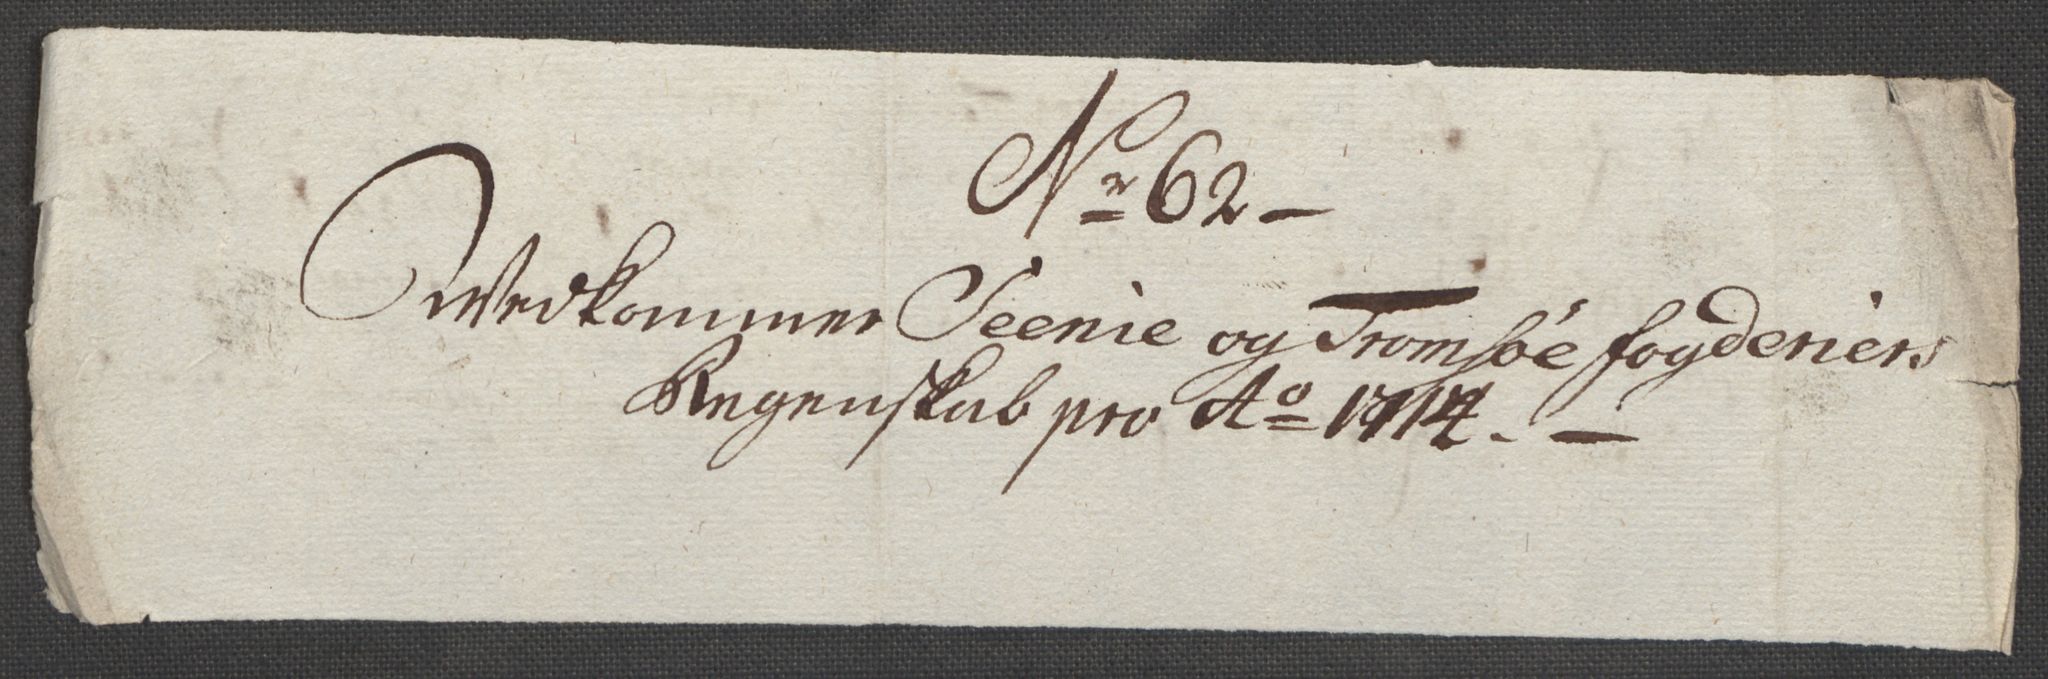 Nr 62 –
Vedkommer Seenie og Tromsöe fogderiers
Regenskab pro Ao 1714. –